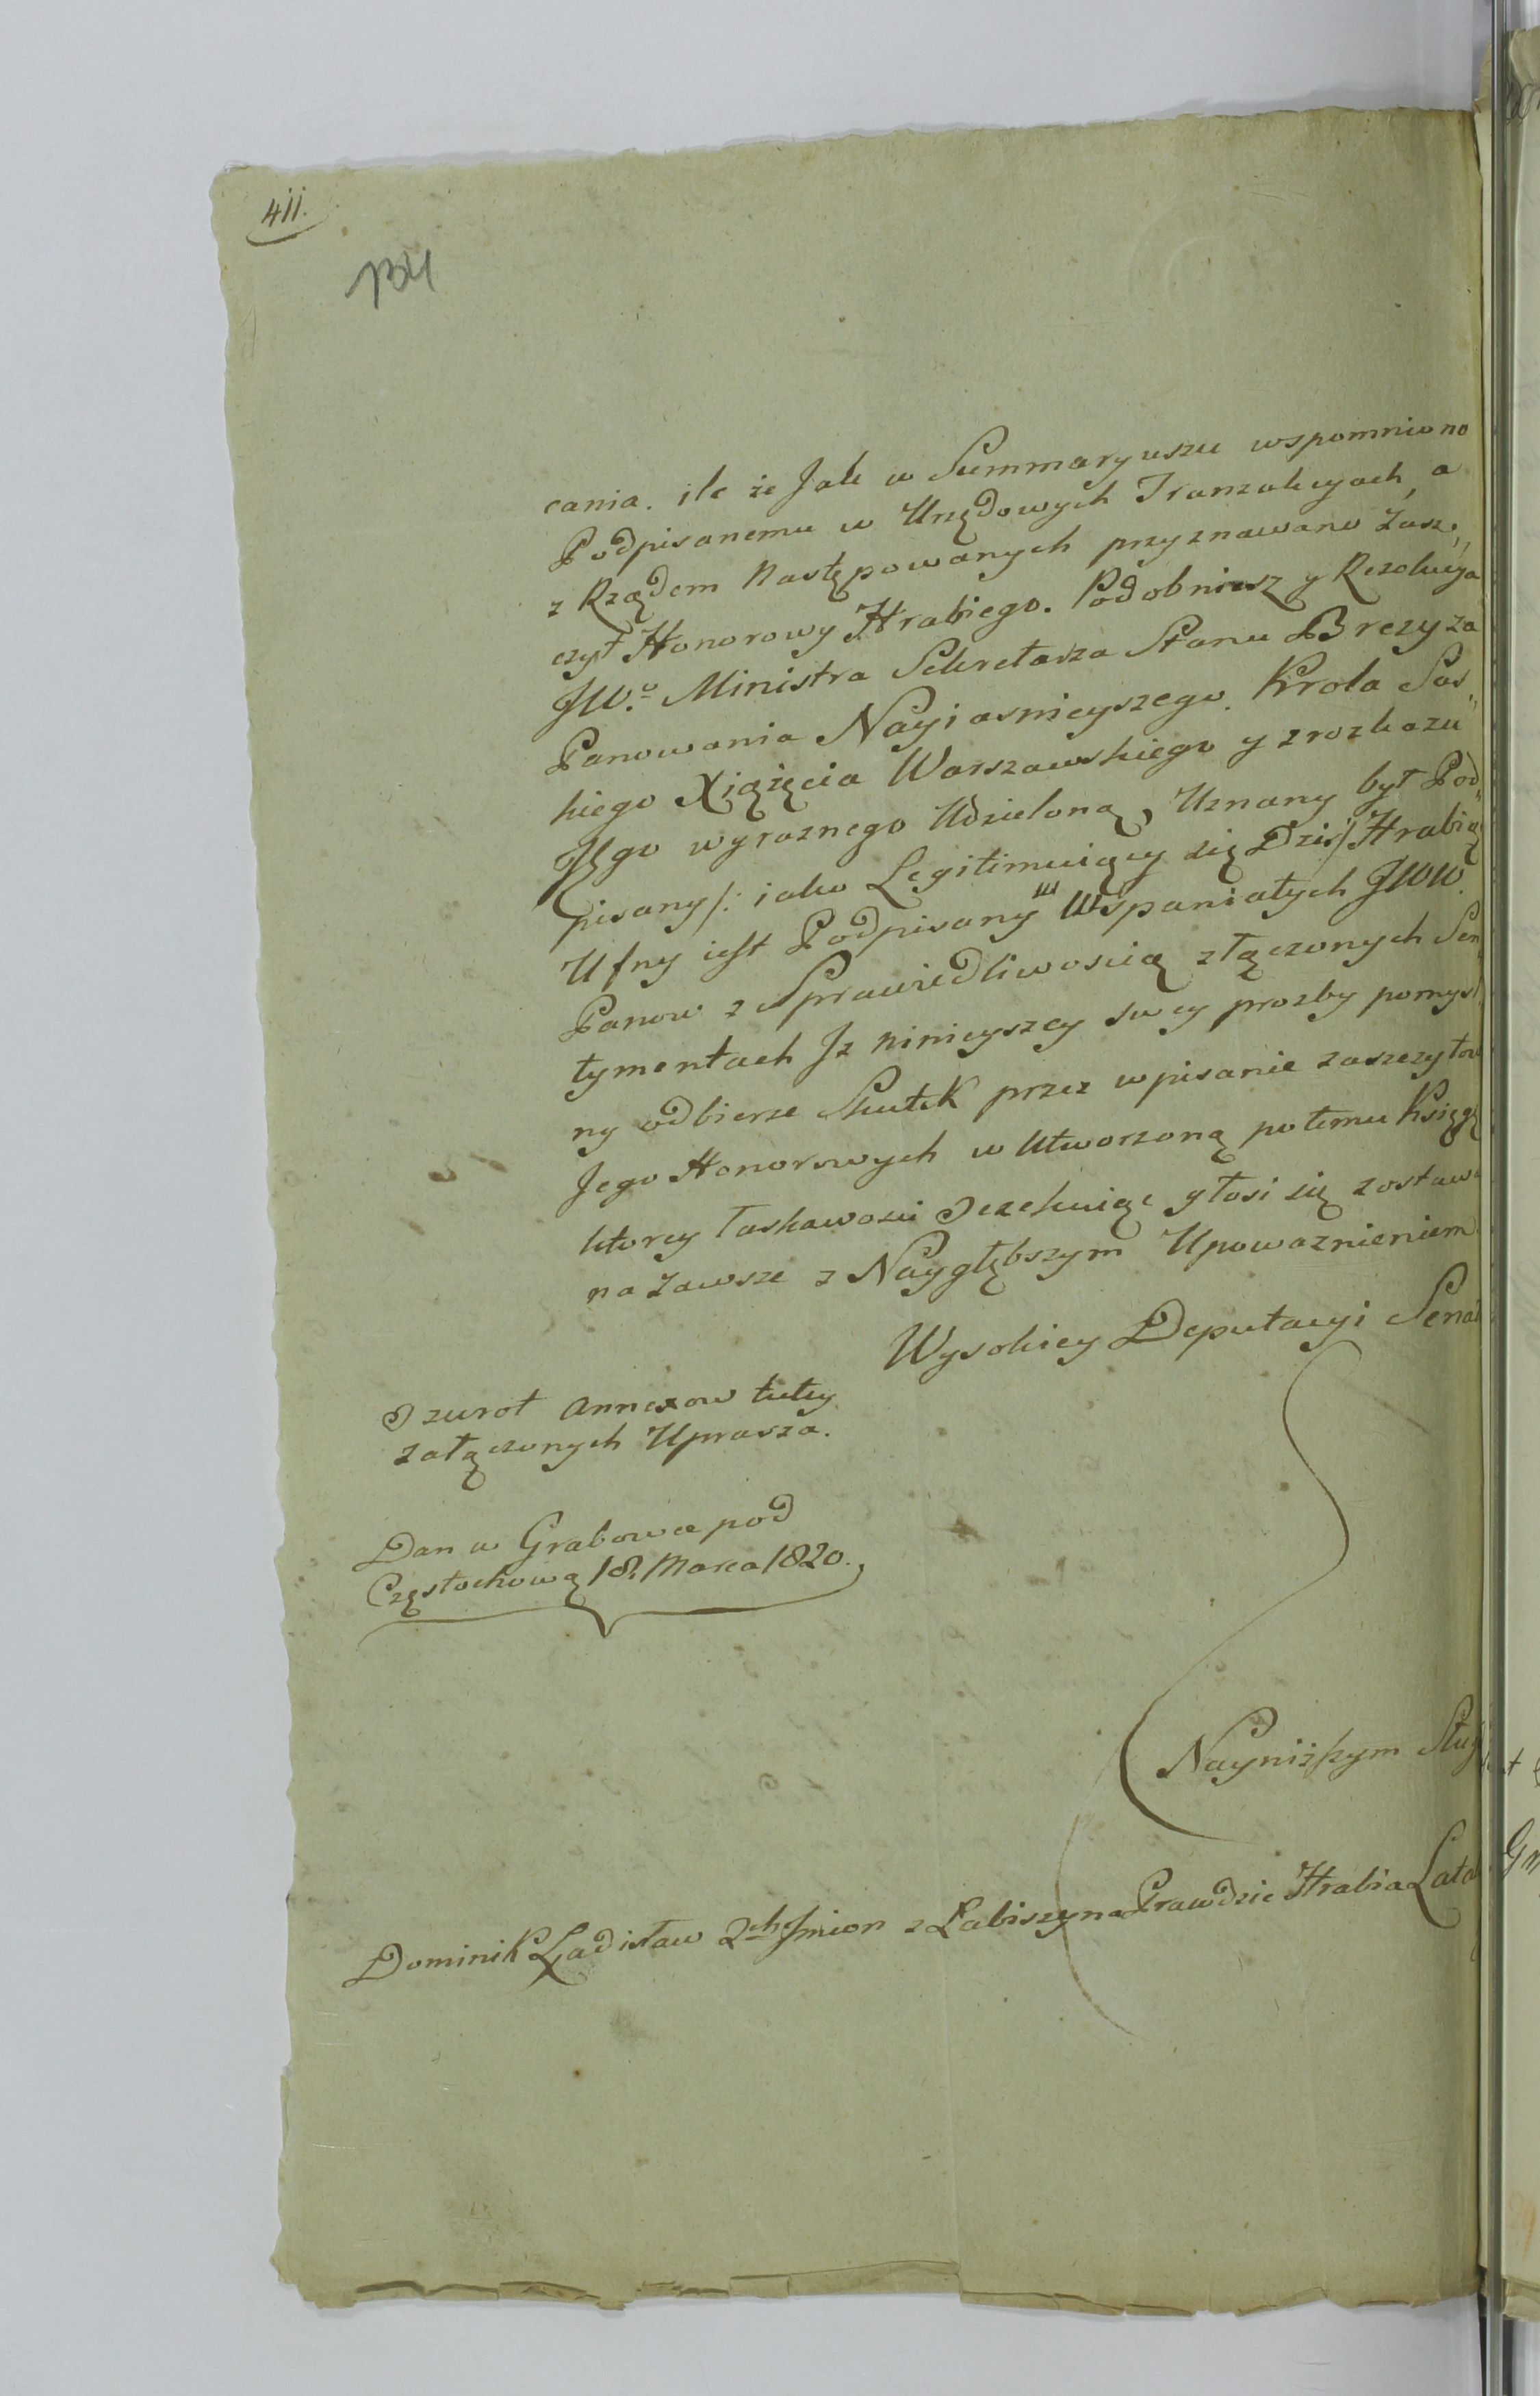 411.
134
cania. ile że Jak w Summaryuszu wspomniono
Podpisanemu w Urzędowych Tranzakcyach, a
z Rządem Następowanych przyznawano Zasz„
czyt Honorowy Hrabiego. Podobnież y Rezolucya
JWo Ministra Sekretarza Stanu Brezy za
Panowania Nayiasnieyszego Krola Sas„
kiego Xiążęcia Warszawskiego y z rozkazu
Jego wyraznego Udzieloną, Uznany był Pod„
pisany /: iako Legitimuiący się Dziś :/ Hrabią
Ufny iest Podpisany w Wspaniałych JWW.
Panow z Sprawiedliwoscią złączonych Sen
tymentach Jz ninieyszey swey prozby pomysl
ny odbierze Skutek przez wpisanie zaszczytow
Jego Honorowych w Utworzoną potemu Księgę
ktorey łaskawosci Oczekuiąc głosi się zostawa
na zawsze z Naygłębszym Upowaznieniem
Wysokiey Deputacyi Senat
O zwrot annexow tutey
załączonych Uprasza.
Dan w Grabowce pod
Częstochową 18. Marca 1820.
Nayniższym Sług
Dominik Ładisław 2ch Jmion z Łabiszyna Prawdzic Hrabia Lata